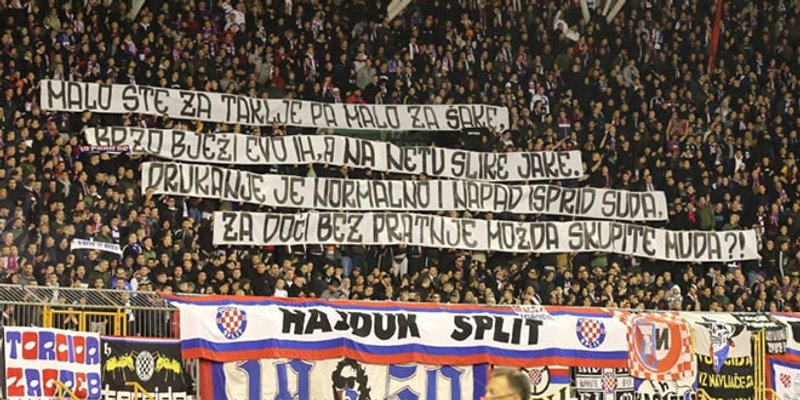 MALO STE ZA TAKLJE PA MALO ZA ŠAKE,
BRZO BJEŽI EVO 14,8 NA NETU SLIKE JAKE.
DRUKANJE JE NORMALNO I NAPAD ISPRID SUDA,
ZA DOĆI BEZ PRATNJE MOŽDA SKUPITE MUDA?!
HAJDUK SPLIT
TORCIDA
ZAGREB
1950
TORCIDA
IZ NAVIJAČE